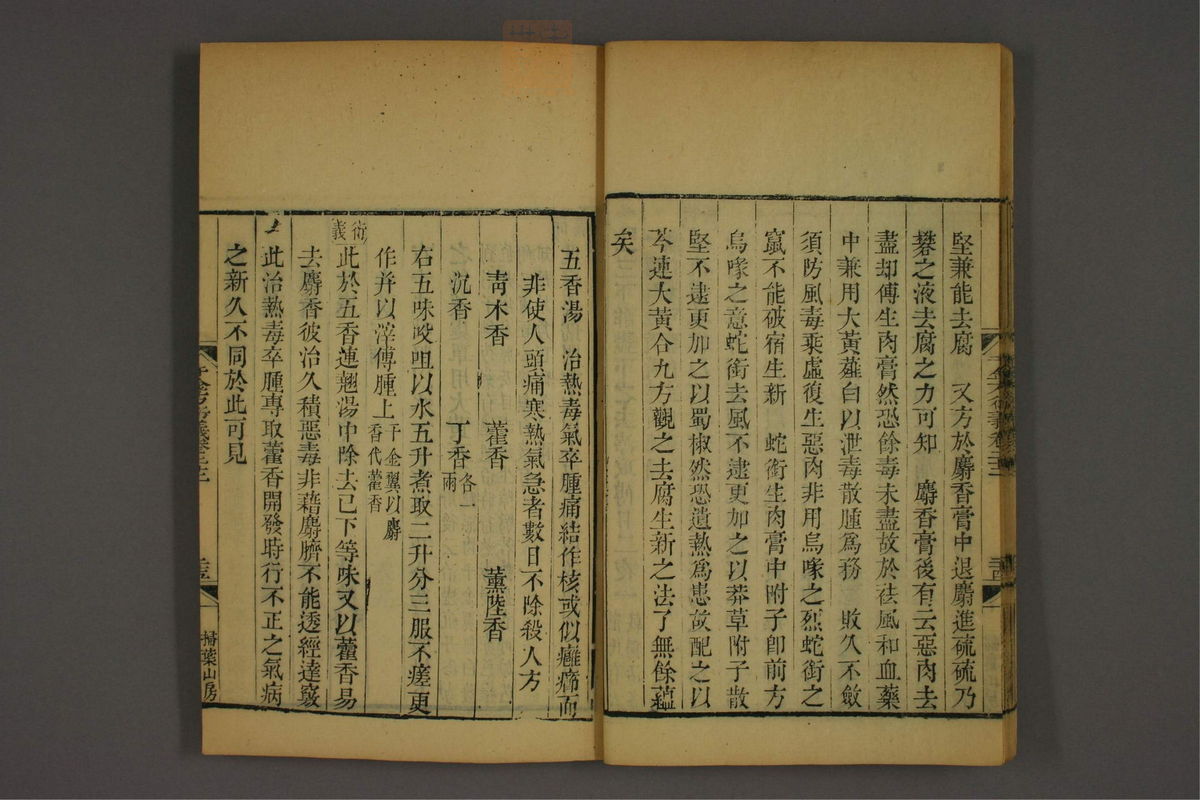 堅兼能去腐　又方於麝香膏中退麝進硫硫乃
礬之液去腐之力可知　麝香膏後有云惡肉去
盡却傅生肉膏然恐餘毒未盡故於祛風和血藥
中兼用大黃薤白以泄毒散腫爲務　敗久不斂
須防風毒乘虛復生惡肉非用烏喙之烈蛇銜之
竄不能破宿生新　蛇銜生肉膏中附子卽前方
烏喙之意蛇銜去風不逮更加之以莽草附子散
堅不逮更加之以蜀椒然恐遺熱爲患故配之以
芩連大黃合九方觀之去腐生新之法了無餘蘊
矣
五香湯　治熱毒氣卒腫痛結作核或似癰癤而
非使人頭痛寒熱氣急者數日不除殺人方
靑木香　藿香　薰陸香
沉香　丁香各一兩
右五味㕮咀以水五升煮取二升分三服不瘥更
作并以滓傅腫上千金翼以麝香代藿香
衍義
此於五香連翹湯中除去已下等味又以藿香易
去麝香彼治久積惡毒非藉麝臍不能透經達竅
此治熱毒卒腫專取藿香開發時行不正之氣病
之新久不同於此可見
掃葉山房